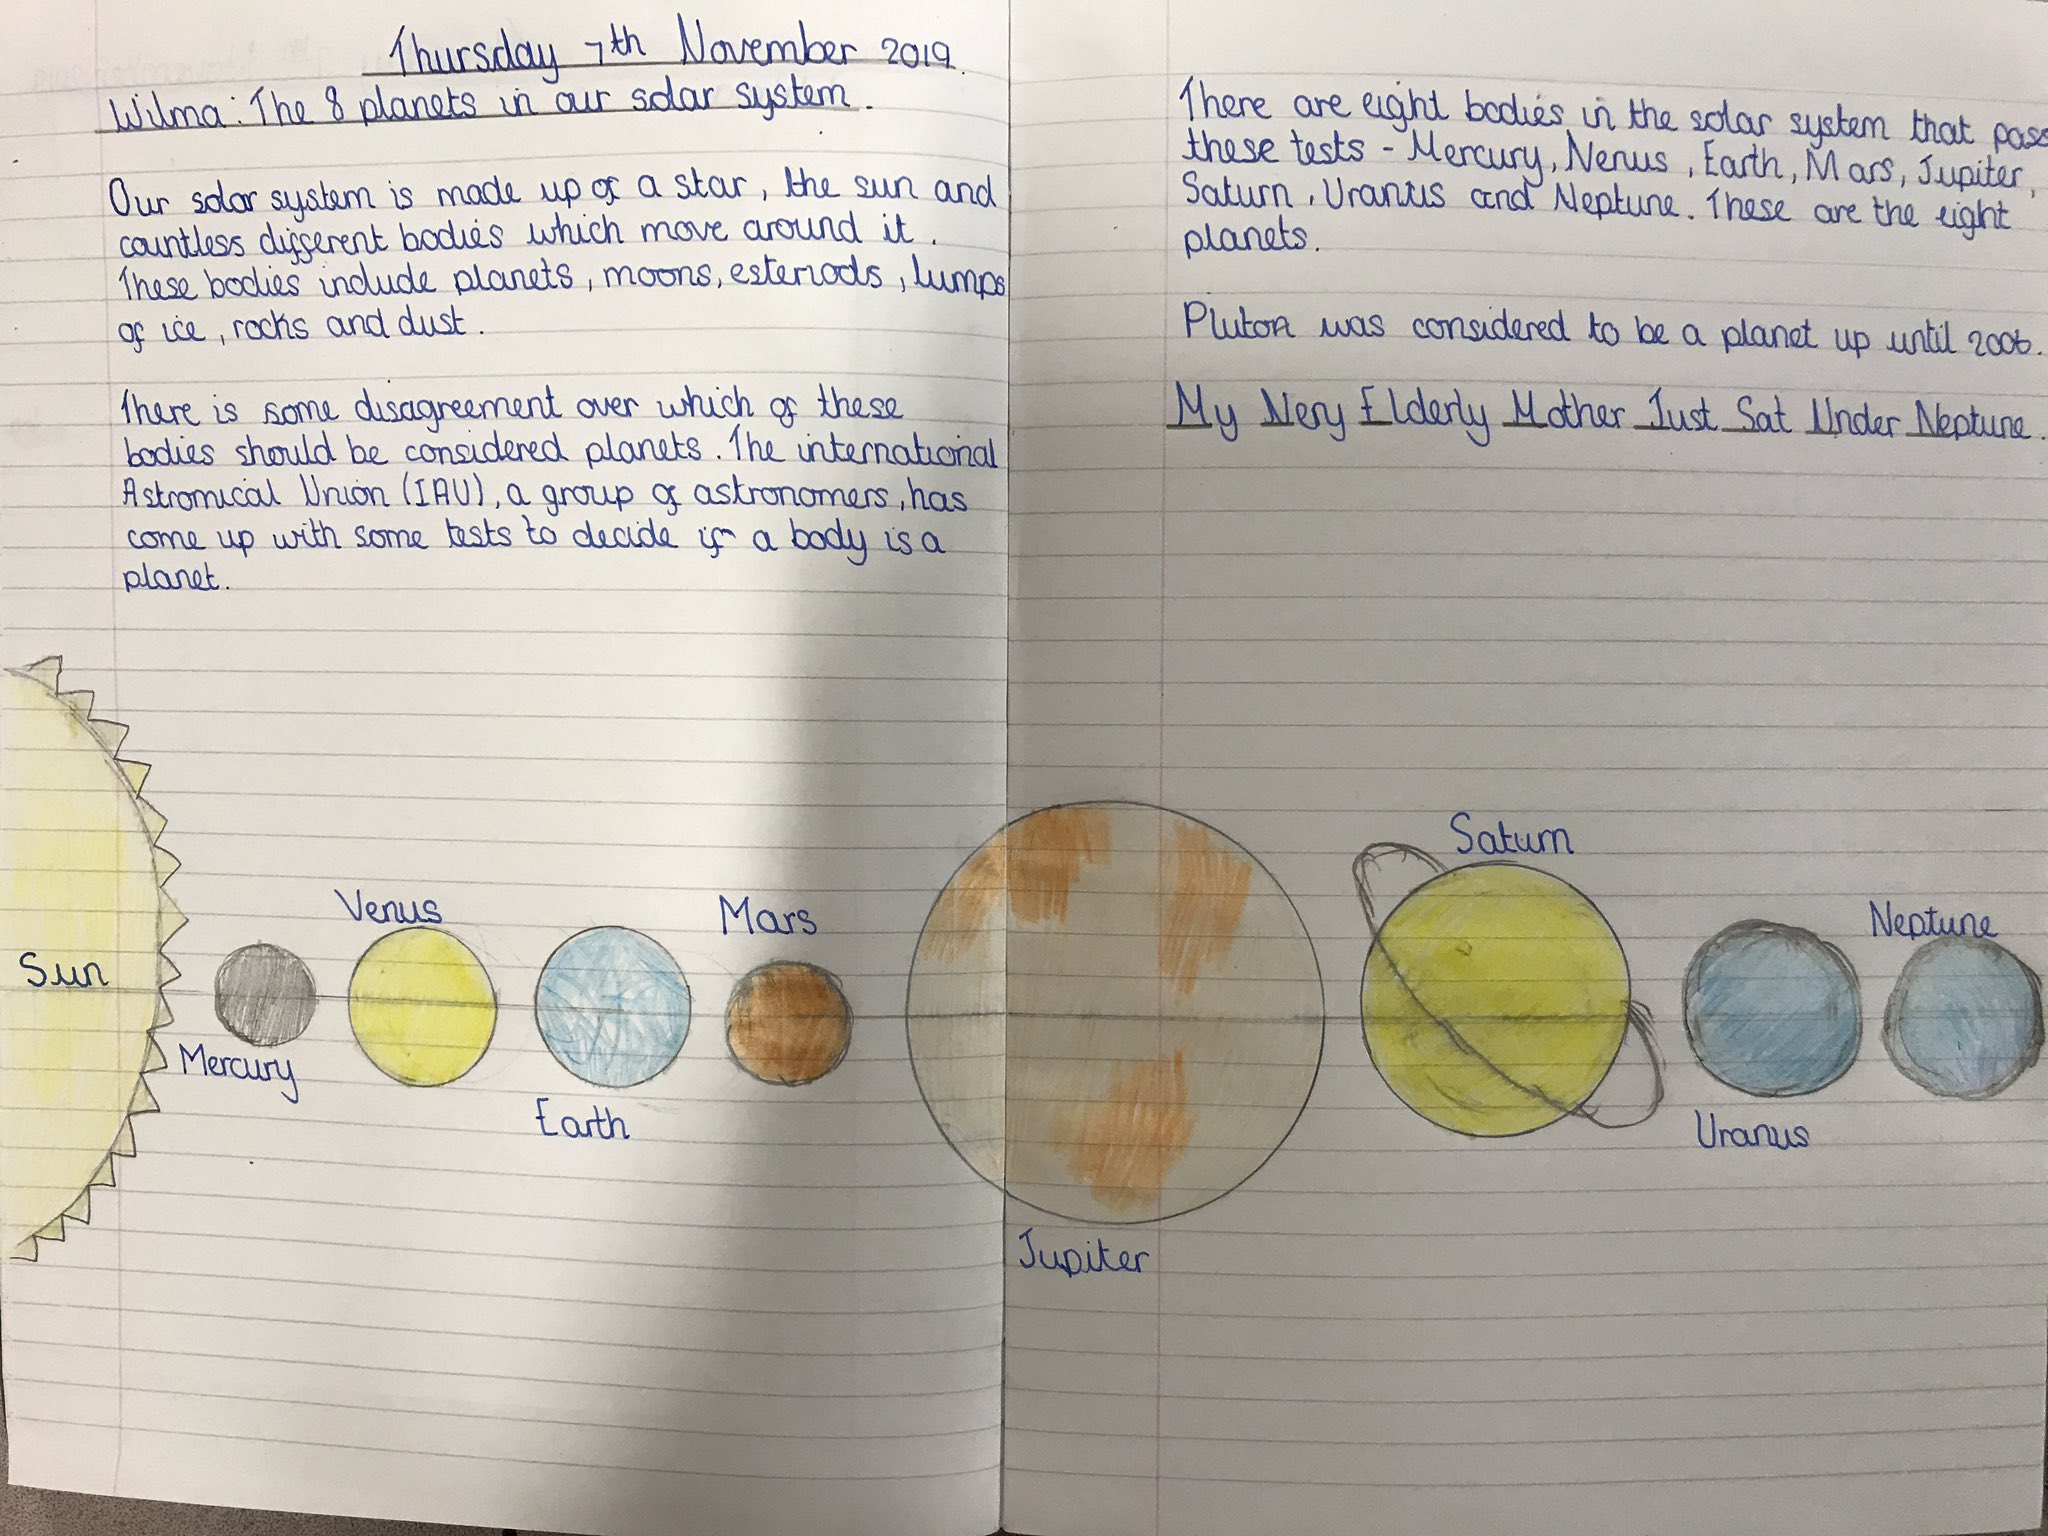 Thursday 7th November 2019.
Wilma: The 8 planets in our solar system.
Our solar system is made up of a star, the sun and
countless different bodies which move around it.
These bodies include planets, moons, esteriods, lumps
of ice, rocks and dust.
There is some disagreement over which of these
bodies should be considered planets. The international
Astromical Union (IAU), a group of astronomers, has
come up with some tests to decide if a body is a
planet.
There are eight bodies in the solar system that pass
these tests - Mercury, Venus, Earth, Mars, Jupiter,
Saturn, Uranus and Neptune. These are the eight
planets.
Pluton was considered to be a planet up until 2006.
My Very Elderly Mother Just Sat Under Neptune.
Sun
Mercury
Venus
Earth
Mars
Jupiter
Saturn
Uranus
Neptune